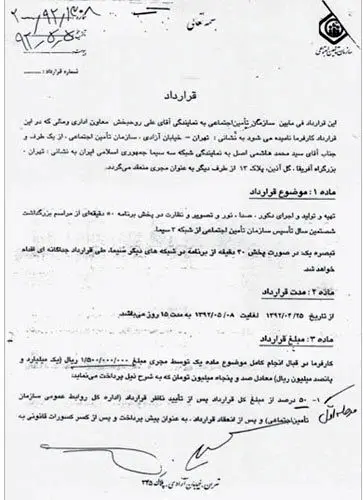 بسمه تعالی
شماره ۲۰۰۰/۹۲/۱۴۰۸
تاریخ ۹۲/۵/۵
پیوست
سازمان تأمین اجتماعی
شماره قرارداد:
قرارداد
این قرارداد فی مابین سازمان تأمین‌اجتماعی به نمایندگی آقای علی روحبخش معاون اداری ومالی که در این
قرارداد کارفرما نامیده می شود به نشانی : تهران – خیابان آزادی ، سازمان تأمین اجتماعی ، از یک طرف و
جناب آقای سید محمد هاشمی اصل به نمایندگی شبکه سه سیما جمهوری اسلامی ایران به نشانی : تهران ،
بزرگراه آفریقا ، گل آذین، پلاک ۱۳ از طرف دیگر به عنوان مجری منعقد می‌گردد.
ماده ۱ : موضوع قرارداد
تهیه و تولید و اجرای دکور ، صدا ، نور و تصویر و نظارت در پخش برنامه ۵۰ دقیقه‌ای از مراسم بزرگداشت
شصتمین سال تأسیس سازمان تأمین اجتماعی از شبکه ۳ سیما.
تبصره یک: در صورت پخش ۳۰ دقیقه از برنامه در شبکه های دیگر سیما، طی قرارداد جداگانه ای اقدام
خواهد شد.
ماده ۲ : مدت قرارداد
از تاریخ ۱۳۹۲/۰۴/۲۵ لغایت ۱۳۹۲/۰۵/۰۸ به مدت ۱۵ روز می‌باشد.
ماده ۳ : مبلغ قرارداد
کارفرما در قبال انجام کامل موضوع ماده یک توسط مجری مبلغ ۱/۵۰۰/۰۰۰/۰۰۰ ریال (یک میلیارد و
پانصد میلیون ریال) معادل صد و پنجاه میلیون تومان که به شرح ذیل پرداخت می‌نماید:
مرحله اول
۱- ۵۰ درصد از مبلغ کل قرارداد پس از تأیید ناظر قرارداد (اداره کل روابط عمومی سازمان
تأمین‌اجتماعی) و پس از انعقاد قرارداد ، به عنوان پیش پرداخت و پس از کسر کسورات قانونی به
تهران، خیابان آزادی، پلاک ۳۴۵